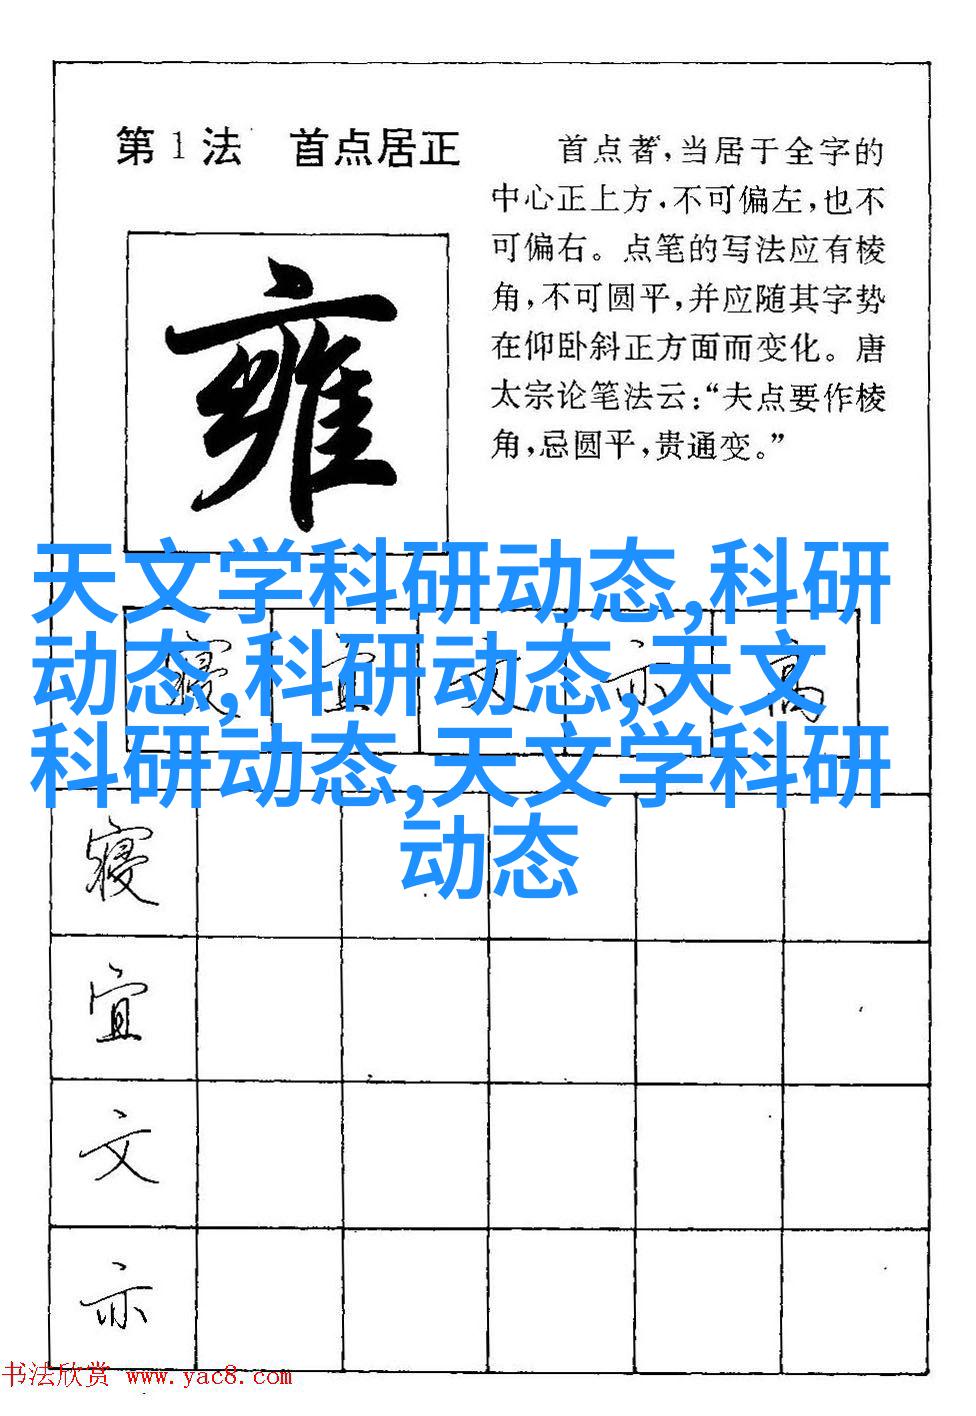 第1法 首点居正
首点者,当居于全字的
中心正上方,不可偏左,也不
可偏右。点笔的写法应有棱
角,不可圆平,并应随其字势
在仰卧斜正方面而变化。唐
太宗论笔法云:“夫点要作棱
角,忌圆平,贵通变。”
雍
天文学科研动态,科研
动态,科研动态,天文
科研动态,天文学科研
动态
寝 宜 文 亦 高
寝
宜
文
亦
书法欣赏 www.yac8.com